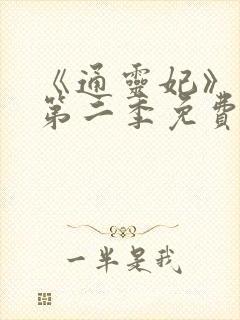 《通靈妃》
第二季免費
一半是我